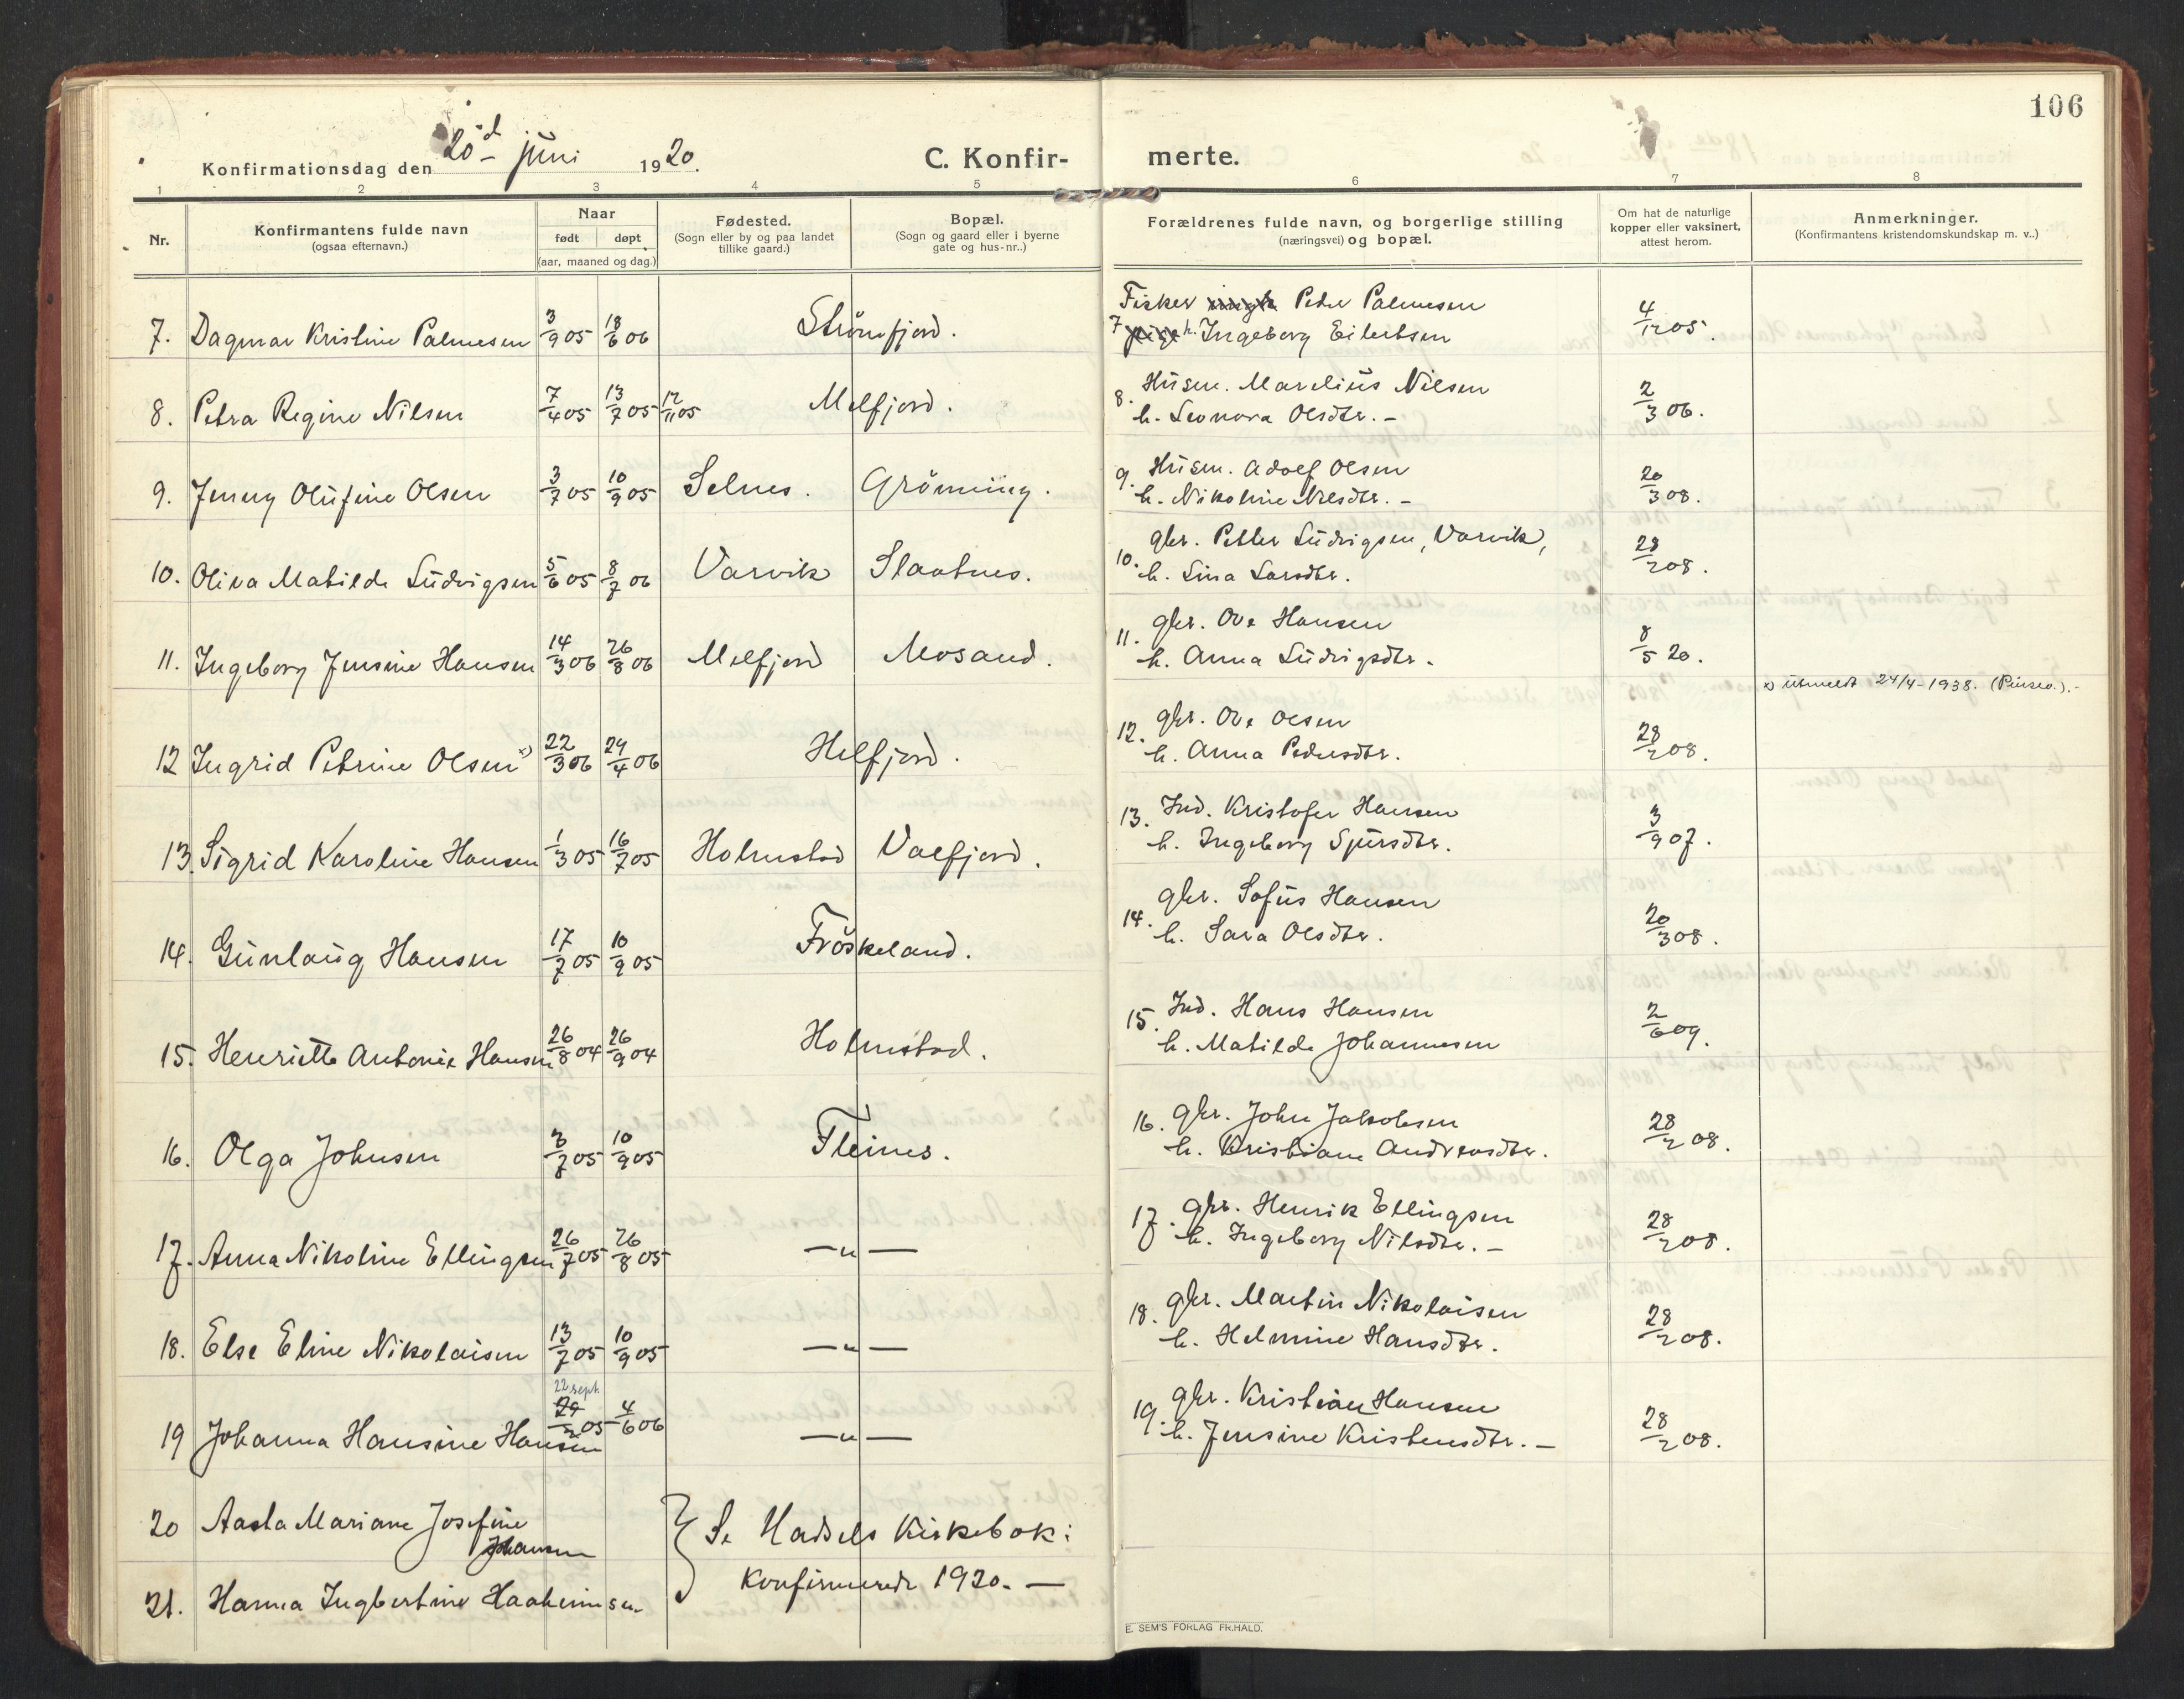 106
Konfirmationsdag den 20d juni 1920. C. Konfirmerte.
1 2 3 4 5 6 7 8
Nr.
Konfirmantens fulde navn
(ogsaa efternavn.)
Naar
født døpt
(aar, maaned og dag.)
Fødested.
(Sogn eller by og paa landet
tillike gaard.)
Bopæl.
(Sogn og gaard eller i byerne
gate og hus-nr..)
Forældrenes fulde navn, og borgerlige stilling
(næringsvei) og bopæl.
Om hat de naturlige
kopper eller vaksinert,
attest herom.
Anmerkninger.
(Konfirmantens kristendomskundskap m. v..)
7. Dagmar Kristine Palmesen 3/9 05 18/6 06 Strömfjord.
Fisker Peder Palmesen
7 h. Ingeborg Eilertsen
4/12 05.
8. Petra Regine Nilsen 7/4 05 13/7 05 12/11 05 Melfjord.
8. Husm. Marelius Nilsen
h. Leonora Olsdtr. –
2/3 06.
9. Jenny Olufine Olsen 3/7 05 10/9 05 Selnes. Grönning.
9. Husm. Adolf Olsen
h. Nikoline Nilsdtr. –
20/3 08.
10. Oliva Matilde Ludvigsen 5/6 05 8/7 06 Varvik Slaatnes.
10. gbr. Petter Ludvigsen, Varvik,
h. Lina Larsdtr.
28/2 08.
11. Ingeborg Jensine Hansen 14/3 06 26/8 06 Melfjord Mosand.
11. gbr. Ove Hansen
h. Anna Ludvigsdtr.
8/5 20.
x) utmeldt 24/4-1938. (Pinsev.).-
12 Ingrid Petrine Olsen x) 22/3 06 29/4 06 Helfjord.
12. gbr. Ove Olsen
h. Anna Pedersdtr.
28/2 08.
13. Sigrid Karoline Hansen 1/3 05 16/7 05 Holmstad Valfjord.
13. Ind. Kristofer Hansen
h. Ingeborg Sjursdtr.
3/9 07.
14. Gunlaug Hansen 17/7 05 10/9 05 Fröskeland.
14. gbr. Sofus Hansen
h. Sara Olsdtr.
20/3 08.
15. Henriette Antonie Hansen 26/8 04 26/9 04 Holmstad.
15. Ind. Hans Hansen
h. Matilde Johannesen
2/6 09.
16. Olga Johnsen 3/7 05 10/9 05 Fleines.
16. gbr. John Jakobsen
h. Kristiane Andreasdtr.
28/2 08.
17. Anna Nikoline Ellingsen 26/7 05 26/8 05 —"—
17. gbr. Henrik Ellingsen
h. Ingeborg Nilsdtr. –
28/2 08.
18. Else Eline Nikolaisen 13/7 05 10/9 05 —"—
18. gbr. Martin Nikolaisen
h. Helmine Hansdtr.
28/2 08.
22 sept.
19 Johanna Hansine Hansen 05 4/6 06 —"—
19. gbr. Kristian Hansen
h. Jensine Kristensdtr. –
28/2 08.
20 Aasta Mariane Josefine
Johansen
} Se Hadsels Kirkebok:
Konfirmerede 1920. —
21. Hanna Ingbertine Haakensen
E. SEM'S FORLAG FR.HALD.